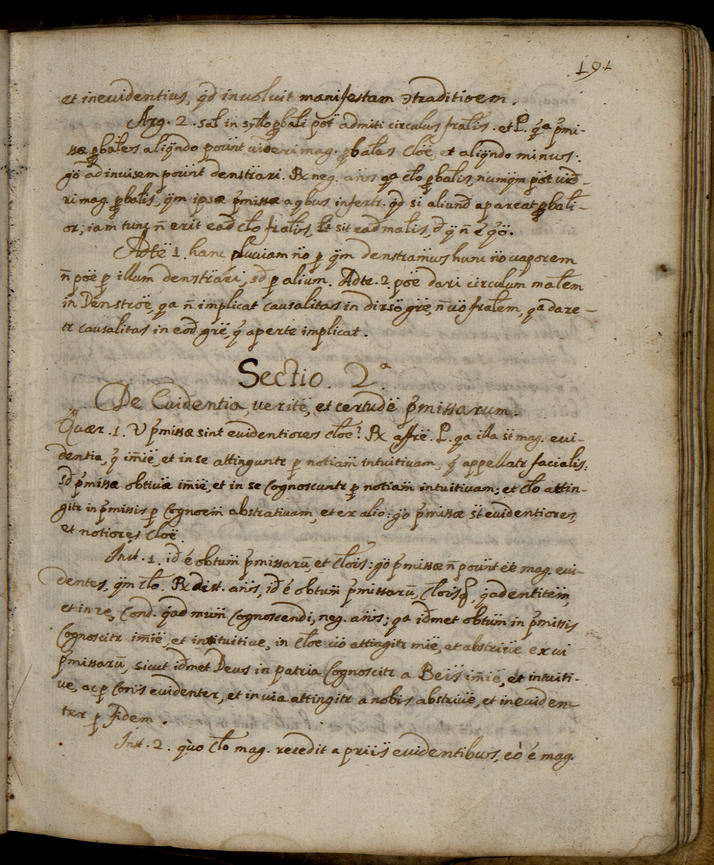 191
et inevidentius, qd involvit manifestam ɔtraditioem.
Arg. 2. Sal in syllo pbali pōt admiti circulus fralis. et P. qa pmi-
ssæ pbales aliqndo pount videri mag. pbales cloē, et aliqndo minus:
gō ad invisem pount denstrari. Rx neg. añs qa clo pbalis, numqm pōt vid-
ri mag. pbalis, qm ipsæ pmissæ a qbus infertr. qd si aliund apareat pbali-
or; iam tunc ñ erit ead clo fralis, lt sit ead malis, d q ñ ē qō.
Adtē 1. hanc pluviam ño p qm denstramus hunc ño vaporem
ñ poē p illum denstrari, sd p alium. Adte. 2. poē dari circulum malem
in Denstroē, qa ñ implicat causalitas in dirso grē, ñ vo fralem, qa dare-
tr causalitas in eod grē, q aperte implicat.
Sectio. 2ª
De Evidentia, veritē, et certudē pmissarum.
Quær. 1. V pmissæ sint evidentiores cloē? Rx affrē. P. qa illa st mag. evi-
dentia, q imiē, et in se attinguntr p notiam intuitivam, q appellatr facialis:
sd pmissæ obtivæ imiē, et in se cognoscuntr p notiam intuitivam; et clo attin-
gitr in pmissis p cognoem abstrativam, et ex alio: gō pmissæ st evidentiores,
et notiores cloē.
Inst. 1. id ē obtum pmissarū, et clois: gō pmissæ ñ pount eē mag. evi-
dentes, qm clo. Rx dist. añs, id ē obtum pmissarū, cloisq, qad entitem,
et in re, cond. qad mum cognoscendi, neg. añs; qa idmet obtum in pmissis
cognoscitr imiē, et intuitive, in cloē vo attingitr miē, et abstrive ex vi
pmissarū, sicut idmet Deus in patria cognoscitr a Beis imiē, et intuiti-
ve, ac p conis evidenter, et in via attingitr a nobis abstrive, et ineviden-
ter p Fidem.
Inst. 2. qùo clo mag. recedit a priis evidentibus, eò ē mag.